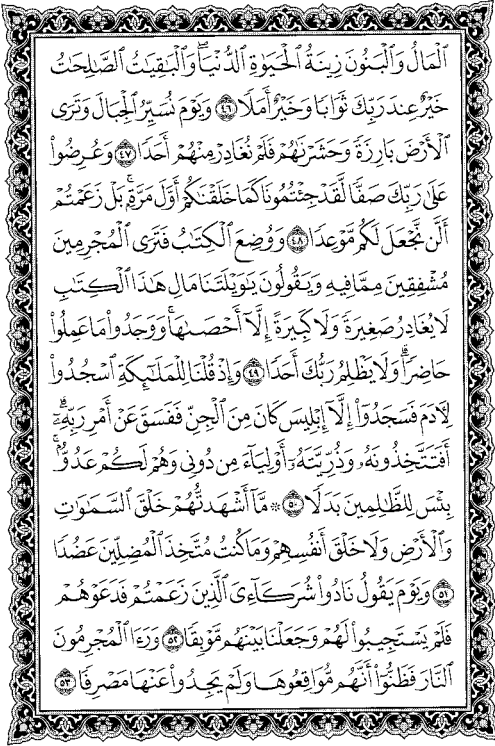 ٱلْمَالُ وَٱلْبَنُونَ زِينَةُ ٱلْحَيَوٰةِ ٱلدُّنْيَا ۖ وَٱلْبَٰقِيَٰتُ ٱلصَّٰلِحَٰتُ
خَيْرٌ عِندَ رَبِّكَ ثَوَابًا وَخَيْرٌ أَمَلًا ٤٦ وَيَوْمَ نُسَيِّرُ ٱلْجِبَالَ وَتَرَى
ٱلْأَرْضَ بَارِزَةً وَحَشَرْنَٰهُمْ فَلَمْ نُغَادِرْ مِنْهُمْ أَحَدًا ٤٧ وَعُرِضُوا۟
عَلَىٰ رَبِّكَ صَفًّا لَّقَدْ جِئْتُمُونَا كَمَا خَلَقْنَٰكُمْ أَوَّلَ مَرَّةٍۭ ۚ بَلْ زَعَمْتُمْ
أَلَّن نَّجْعَلَ لَكُم مَّوْعِدًا ٤٨ وَوُضِعَ ٱلْكِتَٰبُ فَتَرَى ٱلْمُجْرِمِينَ
مُشْفِقِينَ مِمَّا فِيهِ وَيَقُولُونَ يَٰوَيْلَتَنَا مَالِ هَٰذَا ٱلْكِتَٰبِ
لَا يُغَادِرُ صَغِيرَةً وَلَا كَبِيرَةً إِلَّآ أَحْصَىٰهَا ۚ وَوَجَدُوا۟ مَا عَمِلُوا۟
حَاضِرًا ۗ وَلَا يَظْلِمُ رَبُّكَ أَحَدًا ٤٩ وَإِذْ قُلْنَا لِلْمَلَٰٓئِكَةِ ٱسْجُدُوا۟
لِءَادَمَ فَسَجَدُوٓا۟ إِلَّآ إِبْلِيسَ كَانَ مِنَ ٱلْجِنِّ فَفَسَقَ عَنْ أَمْرِ رَبِّهِۦٓ ۗ
أَفَتَتَّخِذُونَهُۥ وَذُرِّيَّتَهُۥٓ أَوْلِيَآءَ مِن دُونِى وَهُمْ لَكُمْ عَدُوٌّۢ ۚ
بِئْسَ لِلظَّٰلِمِينَ بَدَلًا ٥٠ ۞ مَّآ أَشْهَدتُّهُمْ خَلْقَ ٱلسَّمَٰوَٰتِ
وَٱلْأَرْضِ وَلَا خَلْقَ أَنفُسِهِمْ وَمَا كُنتُ مُتَّخِذَ ٱلْمُضِلِّينَ عَضُدًا
٥١ وَيَوْمَ يَقُولُ نَادُوا۟ شُرَكَآءِىَ ٱلَّذِينَ زَعَمْتُمْ فَدَعَوْهُمْ
فَلَمْ يَسْتَجِيبُوا۟ لَهُمْ وَجَعَلْنَا بَيْنَهُم مَّوْبِقًا ٥٢ وَرَءَا ٱلْمُجْرِمُونَ
ٱلنَّارَ فَظَنُّوٓا۟ أَنَّهُم مُّوَاقِعُوهَا وَلَمْ يَجِدُوا۟ عَنْهَا مَصْرِفًا ٥٣